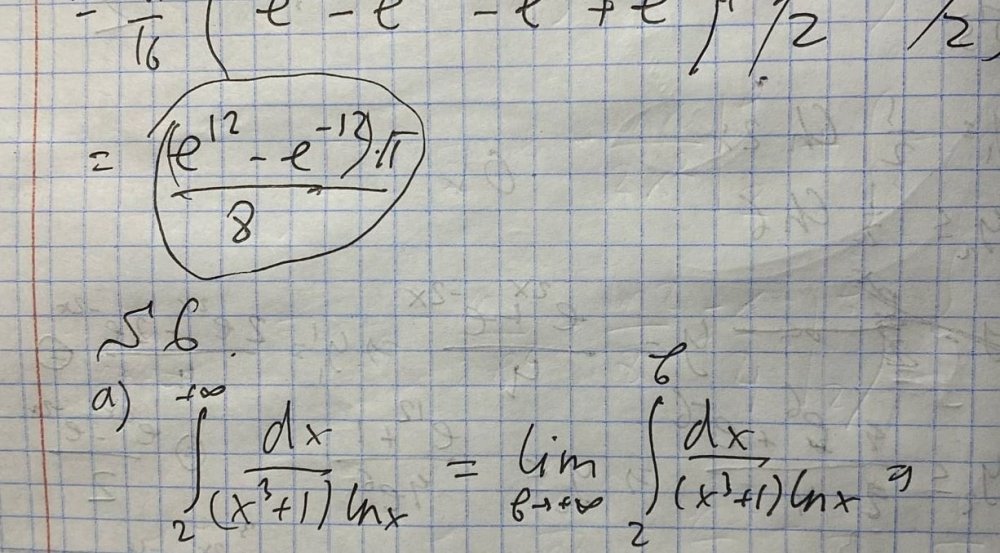 π/16 ( e - e - e + e ) /2 /2
= (e^12 - e^-12)·π / 8
№ 6.
a) ∫_2^{+∞} dx / (x^3+1) ln x = lim_{b→+∞} ∫_2^b dx / (x^3+1) ln x =